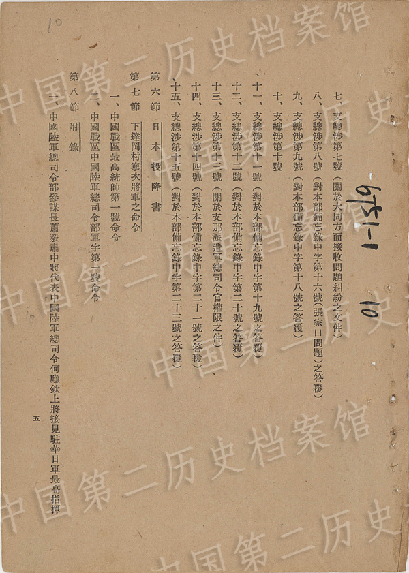 七、支總涉第七號（關於大同方面接收問題糾紛之文件）
八、支總涉第八號（對本部備忘錄中字第十六號（張家口問題）之答覆）
九、支總涉第九號（對本部備忘錄中字第十八號之答覆）
十、支總涉第十號
十一、支總涉第十一號（對於本部備忘錄中字第十九號之答覆）
十二、支總涉第十二號（對於本部備忘錄中字第二十號之答覆）
十三、支總涉第十三號（關於支那派遣軍總司令官權限之件）
十四、支總涉第十四號（對於本部備忘錄中字第二十一號之答覆）
十五、支總涉第十五號（對於本部備忘錄中字第二十三號之答覆）
第六節 日本投降書
第七節 下達岡村寧次將軍之命令
一、中國戰區最高統帥第一號命令
二、中國戰區中國陸軍總司令部軍字第一號命令
第八節 附錄
一、中國陸軍總司令部參謀長蕭毅肅中將代表中國陸軍總司令何應欽上將接見駐華日軍最高指揮
五
10
675-1
10
中国第二历史档案馆
中国第二历史档案馆
中国第二历史档案馆
中国第二历史